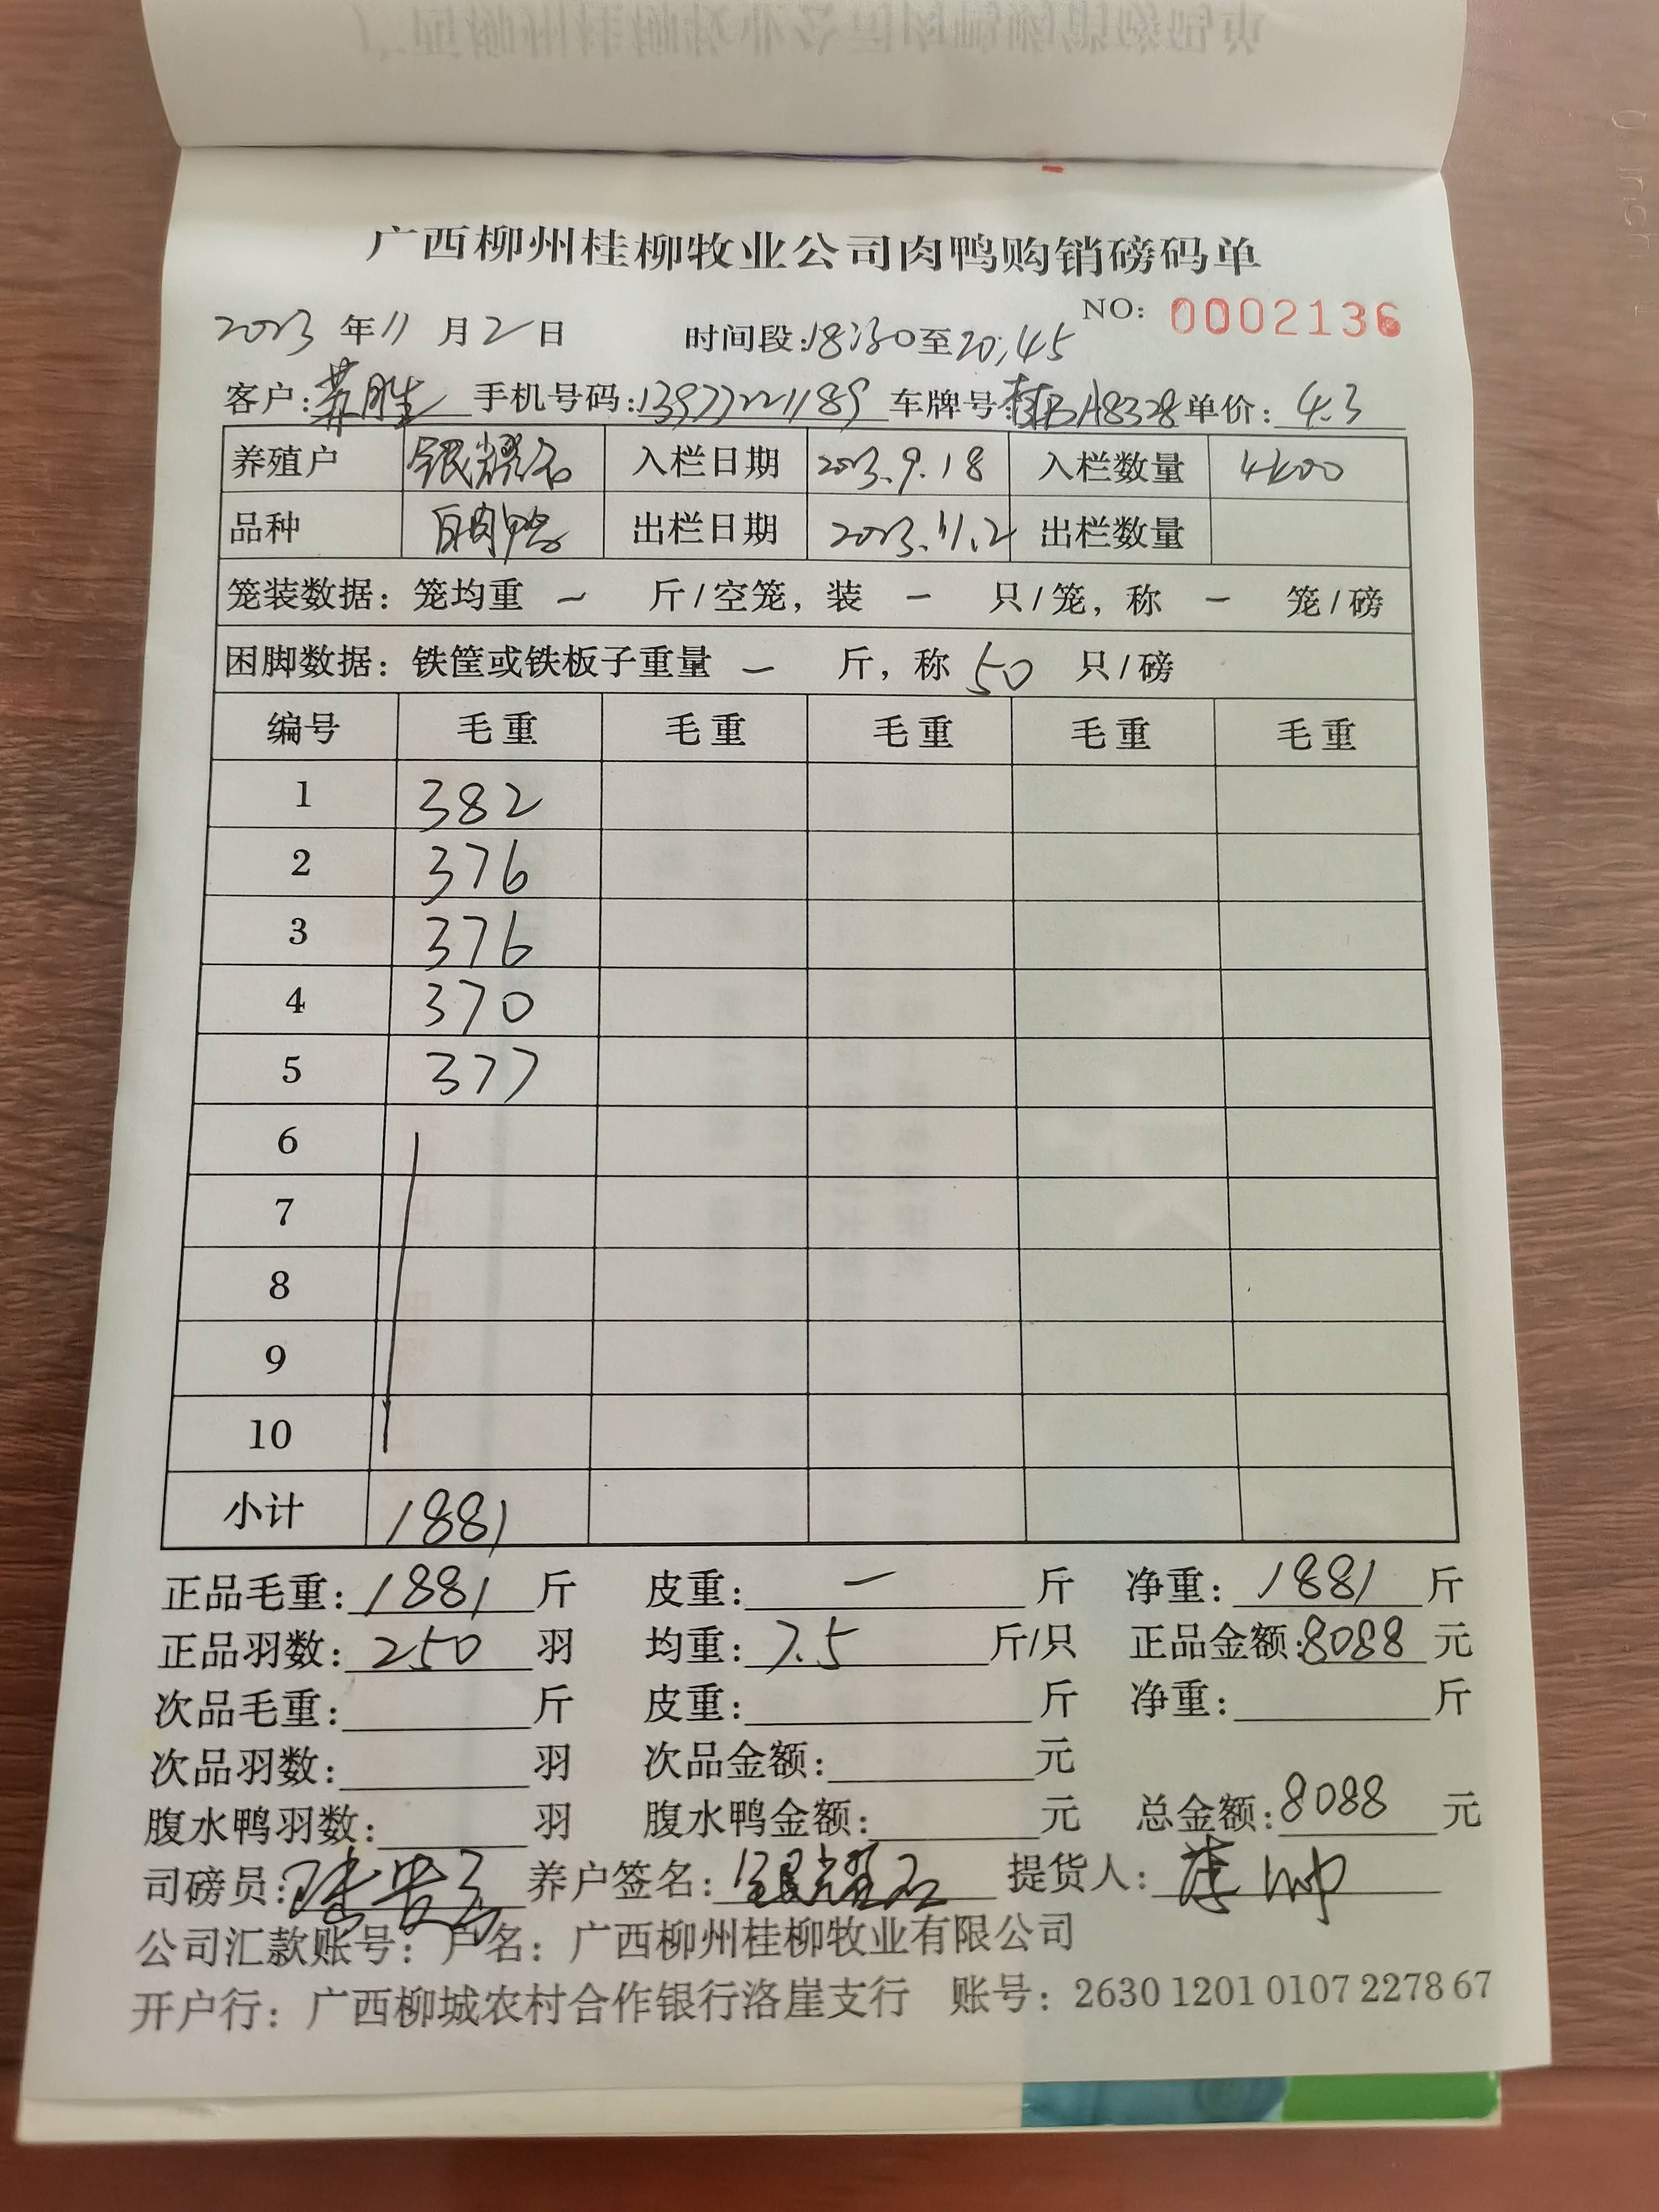 广西柳州桂柳牧业公司肉鸭购销磅码单
NO: 0002136
2023 年 11 月 2 日 时间段: 18:30 至 20:45
客户: 苏胜 手机号码: 13977221189 车牌号: 桂BA8328 单价: 4.3
养殖户 银耀石 入栏日期 2023.9.18 入栏数量
品种 白肉鸭 出栏日期 2023.11.2 出栏数量
笼装数据: 笼均重 - 斤/空笼, 装 - 只/笼, 称 - 笼/磅
困脚数据: 铁筐或铁板子重量 - 斤, 称 50 只/磅
编号 毛重 毛重 毛重 毛重 毛重
1 382
2 376
3 376
4 370
5 377
6
7
8
9
10
小计 1881
正品毛重: 1881 斤 皮重: - 斤 净重: 1881 斤
正品羽数: 250 羽 均重: 7.5 斤/只 正品金额: 8088 元
次品毛重: 斤 皮重: 斤 净重: 斤
次品羽数: 羽 次品金额: 元
腹水鸭羽数: 羽 腹水鸭金额: 元 总金额: 8088 元
司磅员: 养户签名: 银耀石 提货人:
公司汇款账号: 户名: 广西柳州桂柳牧业有限公司
开户行: 广西柳城农村合作银行洛崖支行 账号: 2630 1201 0107 2278 67